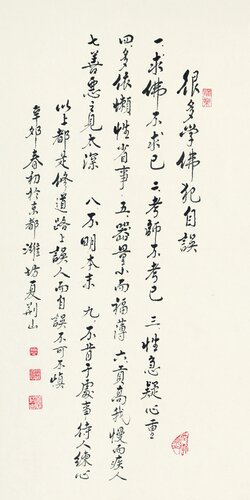 很多学佛犯自误
一求佛不求己 二考师不考己 三性急疑心重
四多依懒性省事 五器量小而福薄 六贡高我慢而疾人
七善恶之见太深 八不明本末 九不肯于处事待人练心
以上都是修道路上误人而自误不可不慎
辛卯春初於京都 潍坊夏荆山